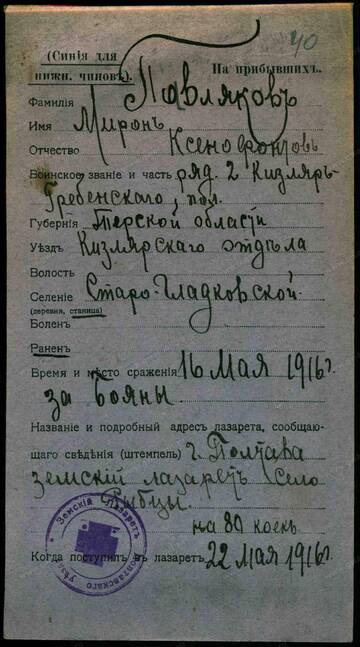 40
(Синія для
нижн. чиновъ).
На прибывшихъ.
Фамилія Павляковъ
Имя Миронъ
Отчество Ксенофонтовъ
Воинское званіе и часть ряд. 2 Кизляръ-
Гребенскаго, пол.
Губернія Терской области
Уѣздъ Кизлярскаго отдѣла
Волость
Селеніе Старо-Гладковской
(деревня, станица)
Боленъ
Раненъ
Время и мѣсто сраженія 16 мая 1916 г.
за Бояны
Названіе и подробный адресъ лазарета, сообщаю-
щаго свѣдѣнія (штемпель) г. Полтава
земскій лазаретъ село
Рыбцы
на 80 коекъ
Когда поступилъ въ лазаретъ 22 мая 1916 г.
Земскій Лазаретъ
Полтавскаго Уѣзда